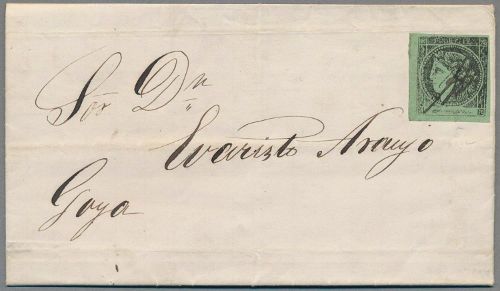 Sor Dn
Evaristo Araujo
Goya